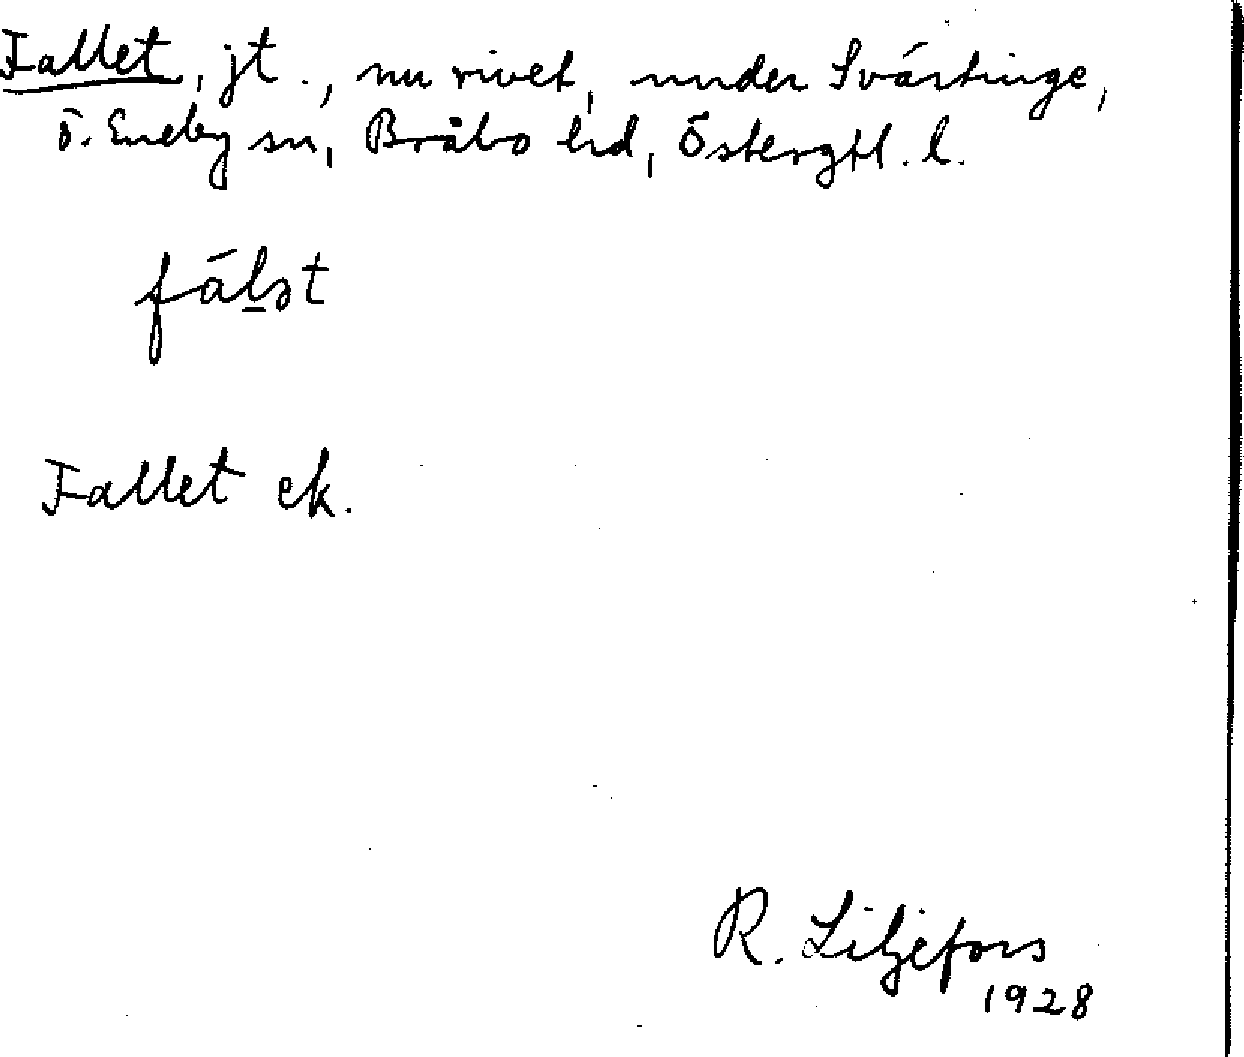 Fallet, jt., nu rivet, under Svärtinge,
Ö. Eneby sn, Bråbo hd, Östergtl. l.
fál̲ət
Fallet ek.
R. Liljefors
1928